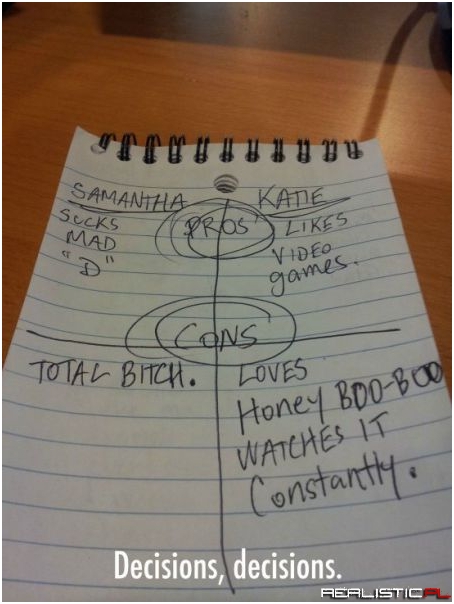 SAMANTHA
SUCKS
MAD
"D"
PROS
KATIE
LIKES
VIDEO
games.
CONS
TOTAL BITCH.
LOVES
Honey BOO-BOO
WATCHES IT
Constantly.
Decisions, decisions.
REALISTICPL